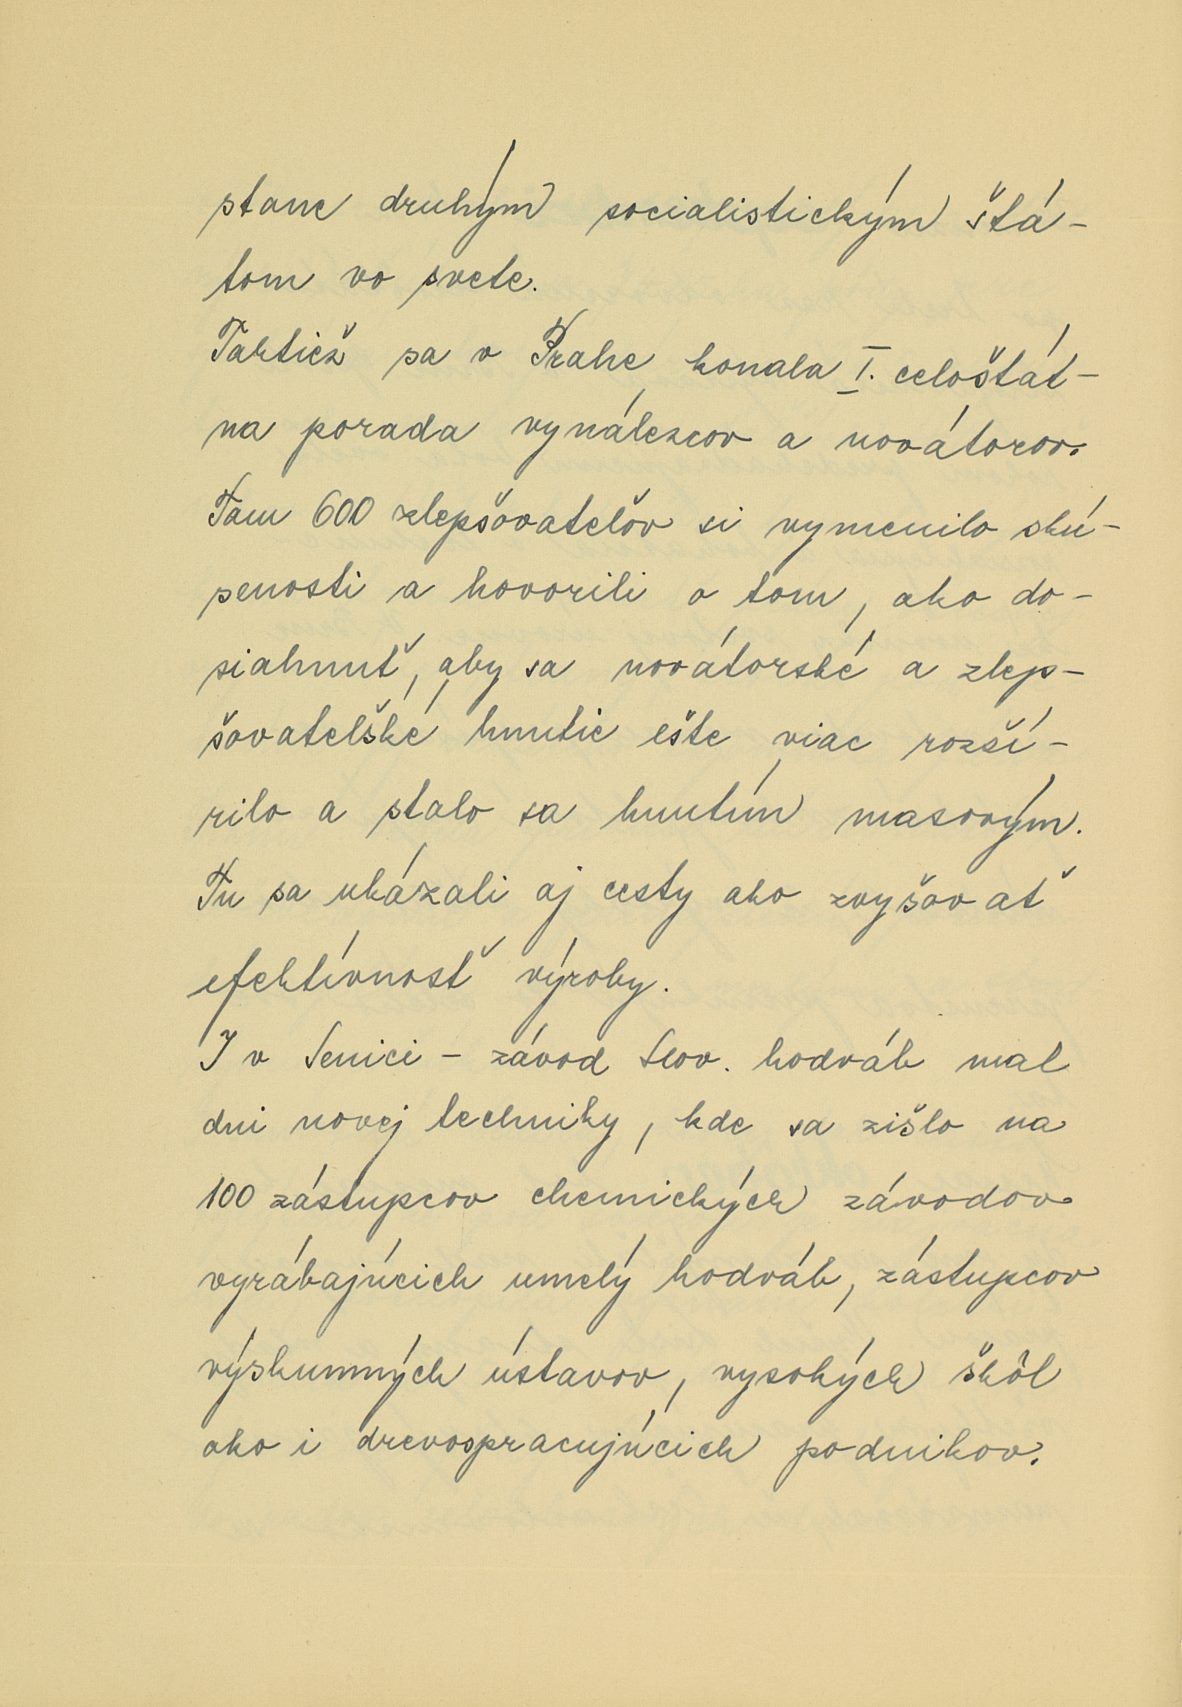 stane druhým socialistickým štá-
tom vo svete.
Taktiež sa v Prahe konala I. celoštát-
na porada vynálezcov a novátorov.
Tam 600 zlepšovateľov si vymenilo skú-
senosti a hovorili o tom, ako do-
siahnuť, aby sa novátorské a zlep-
šovateľské hnutie ešte viac rozší-
rilo a stalo sa hnutím masovým.
Tu sa ukázali aj cesty ako zvyšovať
efektívnosť výroby.
I v Senici - závod Slov. hodváb mal
dni novej techniky, kde sa zišlo na
100 zástupcov chemických závodov
vyrábajúcich umelý hodváb, zástupcov
výskumných ústavov, vysokých škôl
ako i drevospracujúcich podnikov.